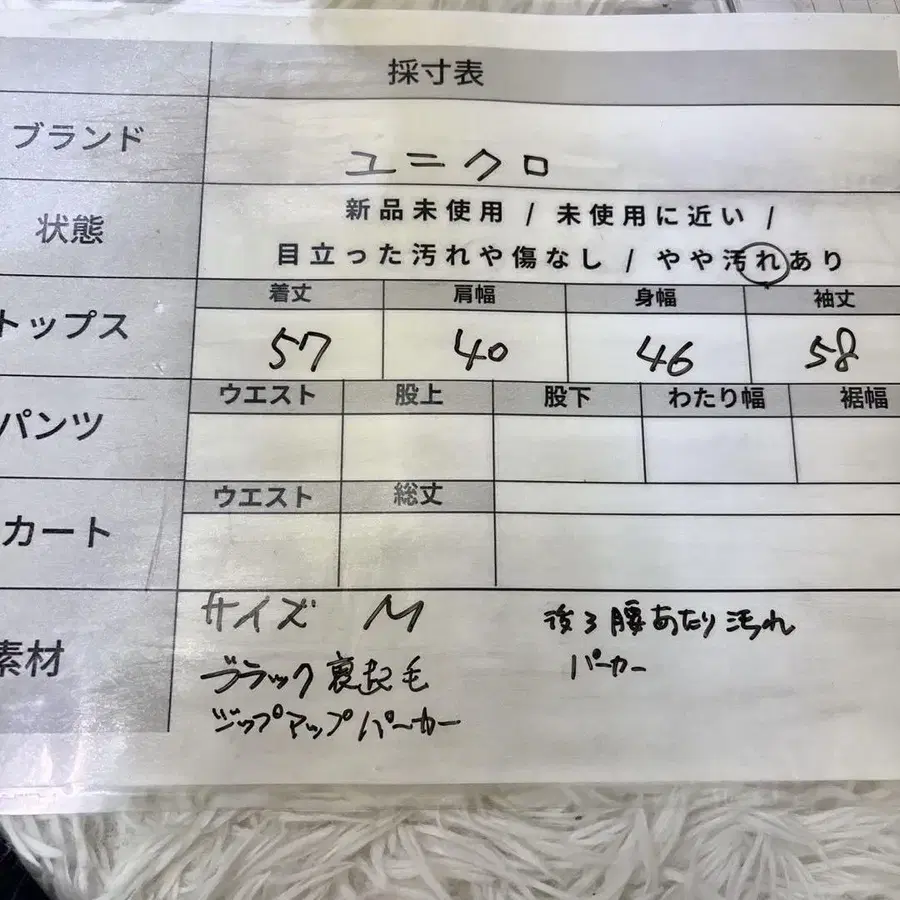 採寸表
ブランド ユニクロ
状態 新品未使用 / 未使用に近い /
目立った汚れや傷なし / やや汚れあり
トップス 着丈 肩幅 身幅 袖丈
57 40 46 58
パンツ ウエスト 股上 股下 わたり幅 裾幅
カート ウエスト 総丈
素材 サイズ M
ブラック裏起毛
ジップアップパーカー
後ろ腰あたり汚れ
パーカー